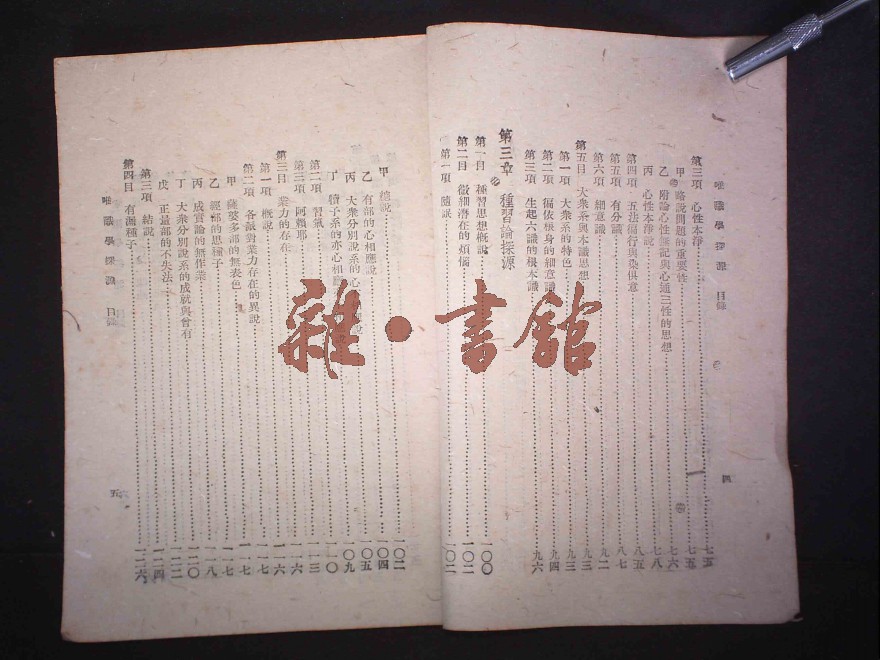 唯識學探源 目錄
第三項 心性本淨 七五
甲 略說問題的重要性 七五
乙 附論心性無記與心通三性的思想 七六
丙 心性本淨說 七八
第四項 五法徧行與染俱意 八五
第五項 有分識 八七
第六項 細意識 九二
第五目 大衆系與本識思想 九三
第一項 大衆系的特色 九三
第二項 徧依根身的細意識 九四
第三項 生起六識的根本識 九六
第三章 種習論探源
第一目 種習思想概說 一〇〇
第二目 微細潛在的煩惱 一〇二
第一項 隨眠 一〇二
四
甲 總說 一〇二
乙 有部的心相應說 一〇四
丙 大衆分別說系的心 一〇五
丁 犢子系的亦心相應 一〇九
第二項 習氣 一一〇
第三項 阿賴耶 一一三
第三目 業力的存在 一一六
第一項 概說 一一六
第二項 各派對業力存在的異說 一一七
甲 薩婆多部的無表色 一一七
乙 經部的思種子 一一八
丙 成實論的無作業 一二〇
丁 大衆分別說系的成就與曾有 一二二
戊 正量部的不失法 一二二
第三項 結說 一二四
第四目 有漏種子 一二六
唯識學探源 目錄
五
雜·書館